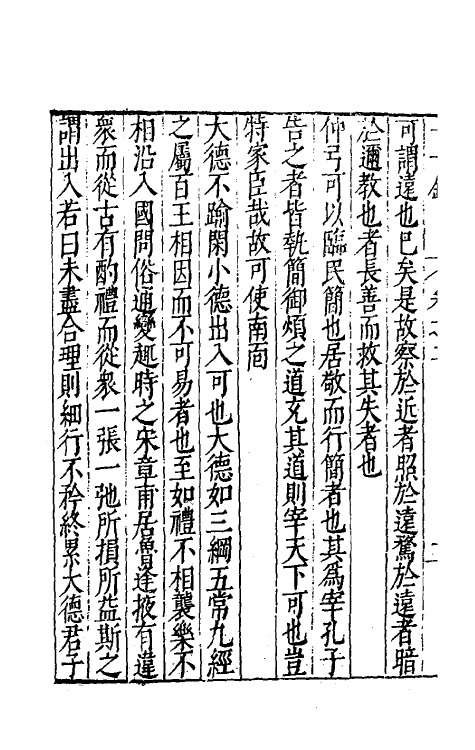 可謂遠也已矣是故察於近者照於遠騖於遠者暗
於邇教也者長善而救其失者也
仲弓可以臨民簡也居敬而行簡者也其為宰孔子
告之者皆執簡御煩之道充其道則宰天下可也豈
特家臣哉故可使南面
大德不踰閑小德出入可也大德如三綱五常九經
之屬百王相因而不可易者也至如禮不相襲樂不
相沿入國問俗通變趣時之宋章甫居魯逢掖有違
衆而從古有酌禮而從衆一張一弛所損所益斯之
謂出入若曰未盡合理則細行不矜終累大德君子